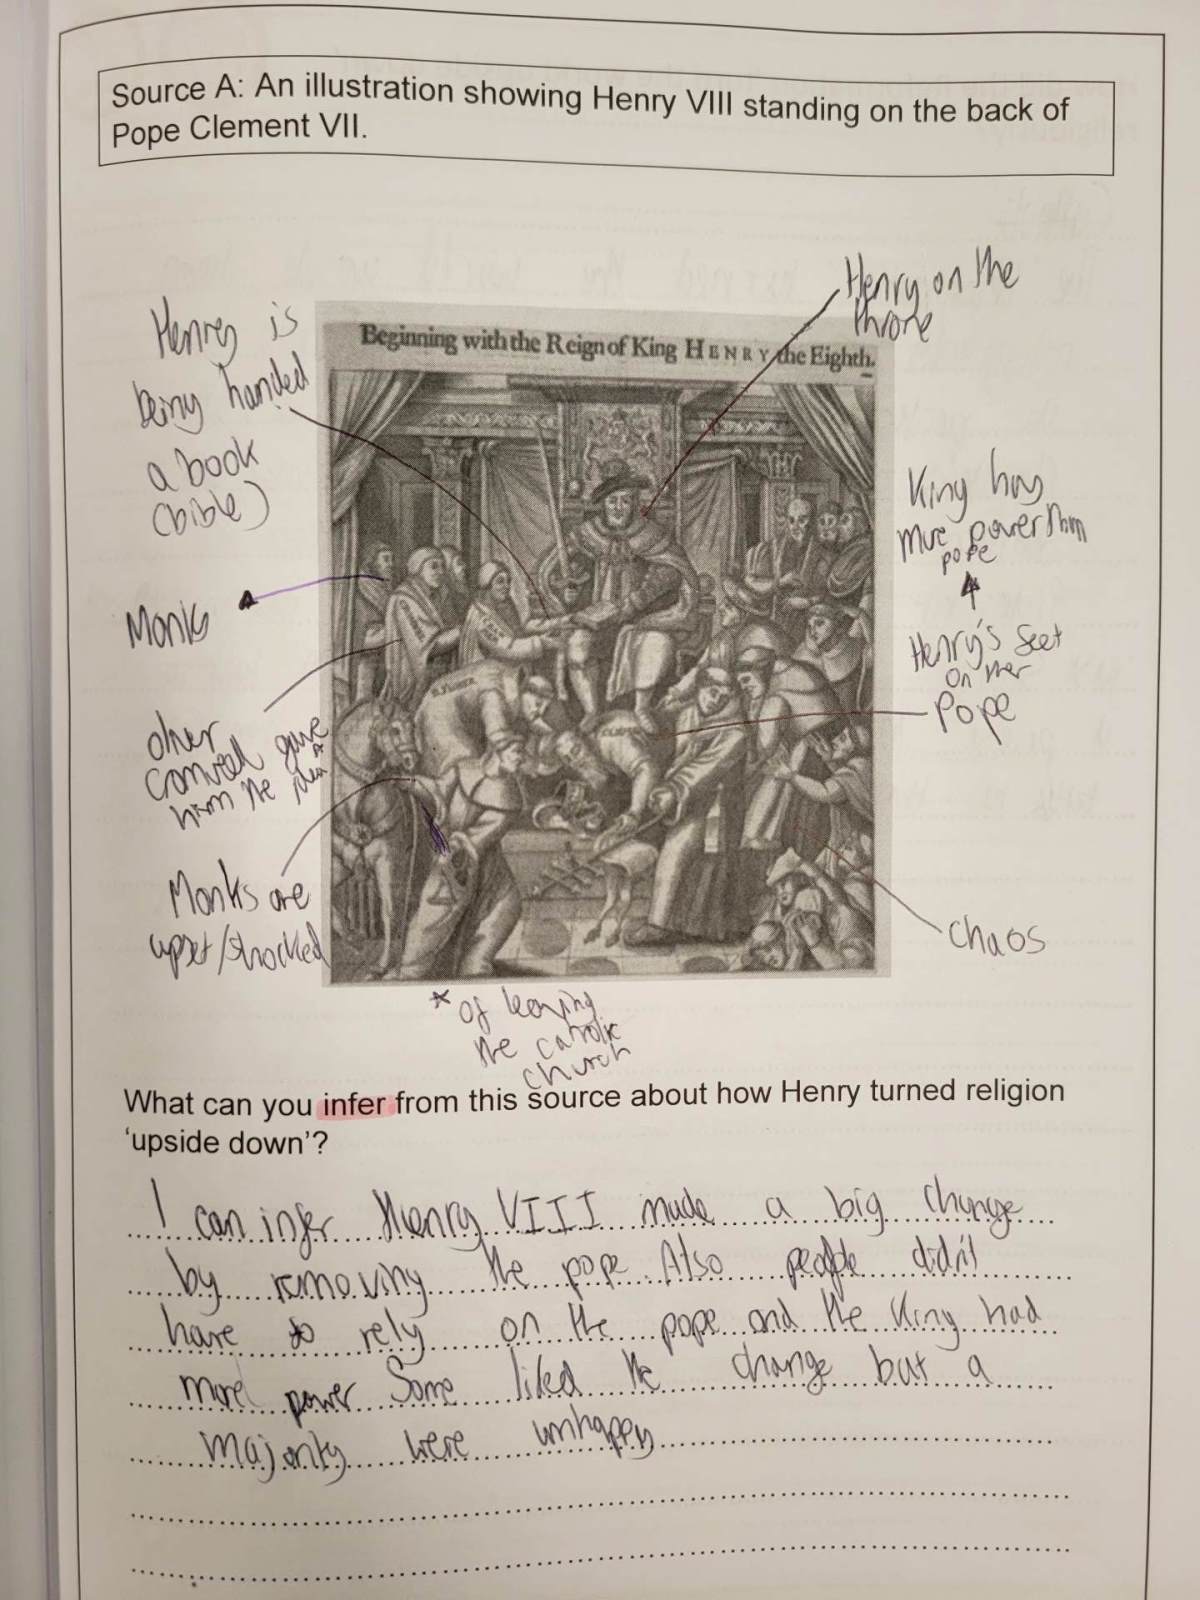 Source A: An illustration showing Henry VIII standing on the back of
Pope Clement VII.
Henry on the
throne
Henry is
being handed
a book
(bible)
Beginning with the Reign of King HENRY the Eighth.
King has
more power than
pope
Monks
Henry's feet
on the
Pope
other
Cromwell gave
him the idea
Monks are
upset/shocked
chaos
* of leaving
the catrolic
church
What can you infer from this source about how Henry turned religion
‘upside down’?
I can infer Henry VIII made a big change
by removing the pope. Also people didn't
have to rely on the pope and the King had
more power Some liked the change but a
majority were unhappy